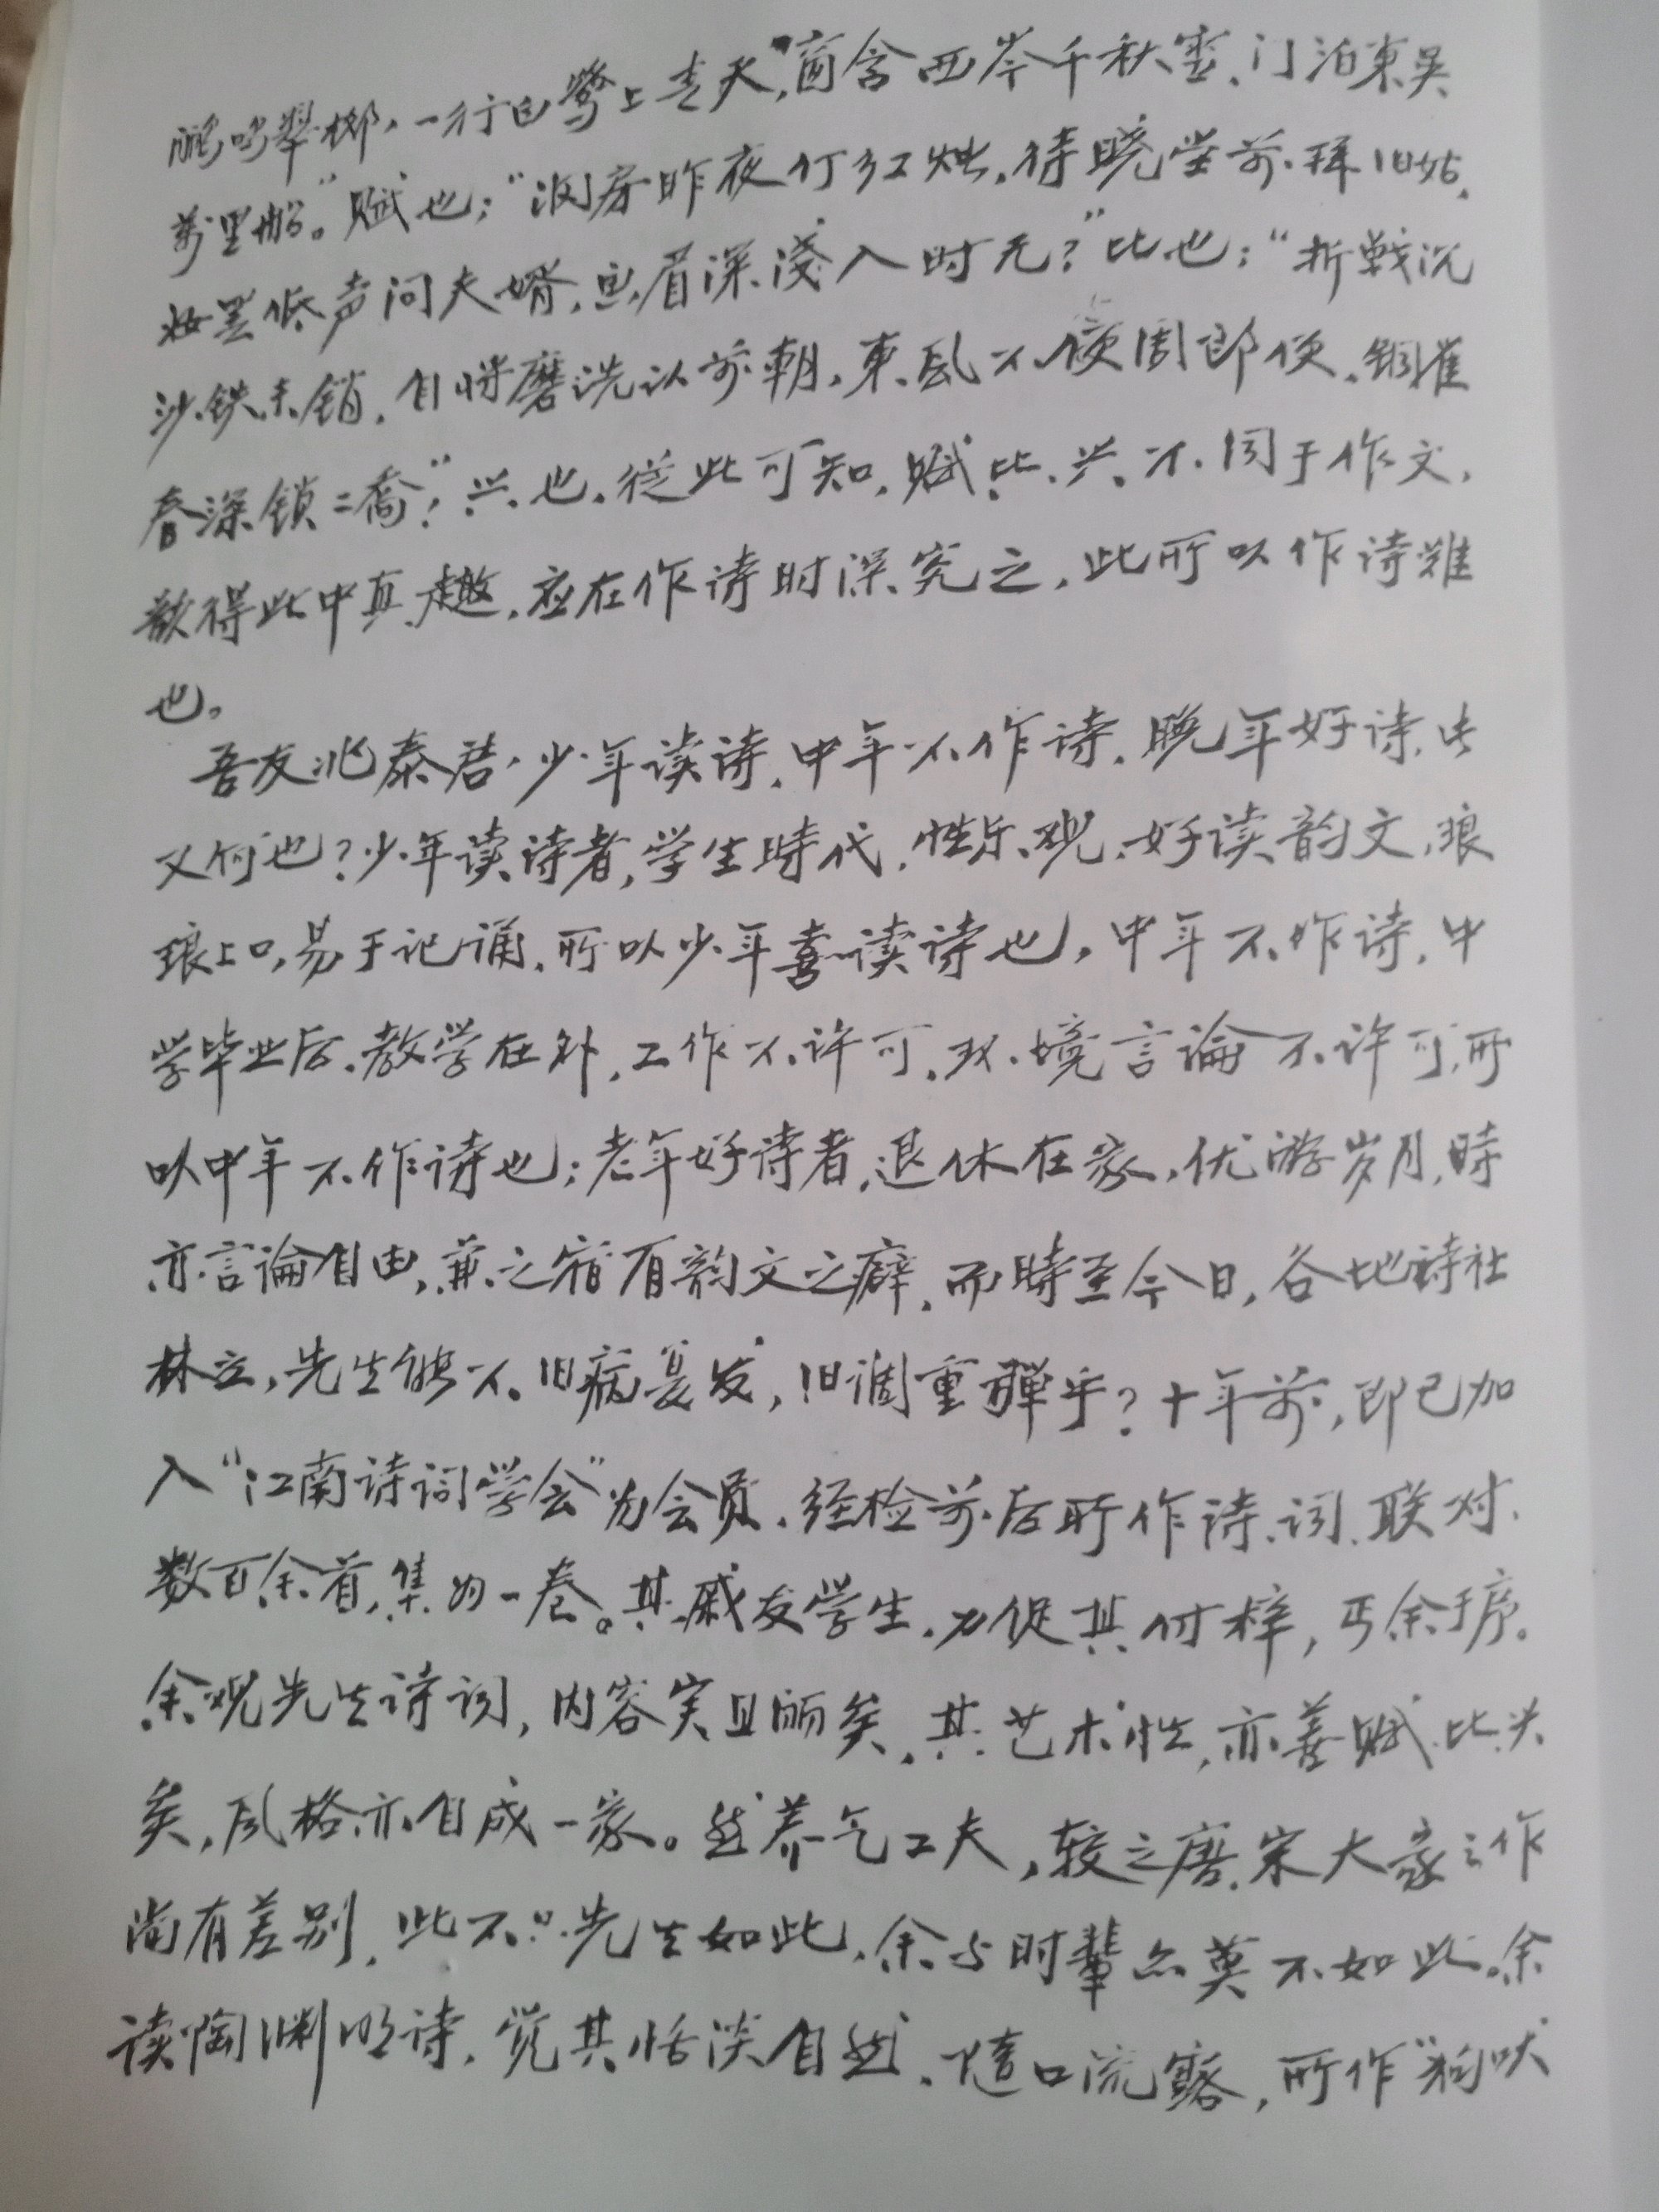 鹂鸣翠柳,一行白鹭上青天,窗含西岑千秋雪、门泊東吴
萬里船。”赋也;“洞房昨夜仃红烛,待晓堂前拜旧姑,
妆罢低声问夫婿,画眉深浅入时无?”比也;“折戟沉
沙铁未销,自将磨洗认前朝,東風不便周郎便,铜雀
春深锁二喬”,兴也。從此可知,赋、比、兴、不同于作文,
欲得此中真趣,应在作诗时深究之,此所以作诗难
也。
吾友兆泰君,少年读诗,中年不作诗,晚年好诗,此
又何也?少年读诗者,学生時代,性乐观,好读韵文,琅
琅上口,易于记诵,所以少年喜读诗也,中年不作诗,中
学毕业后,教学在外,工作不许可,环境言論不许可,所
以中年不作诗也;老年好诗者,退休在家,优游岁月,時
亦言論自由,兼之宿有韵文之癖,而時至今日,各地詩社
林立,先生能不旧病复发,旧调重弹乎?十年前,即已加
入“江南诗词学会”为会员,经检前后所作诗、词、联对、
数百余首,集为一卷。其戚友学生,力促其付梓,丐余于序。
余观先生诗词,内容实且丽矣,其艺术性,亦善赋比兴
矣,風格亦自成一家。然养气工夫,较之唐、宋大家之作
尚有差别,此不只先生如此,余与时輩亦莫不如此。余
读陶渊明诗,觉其恬淡自然,随口流露,所作“狗吠